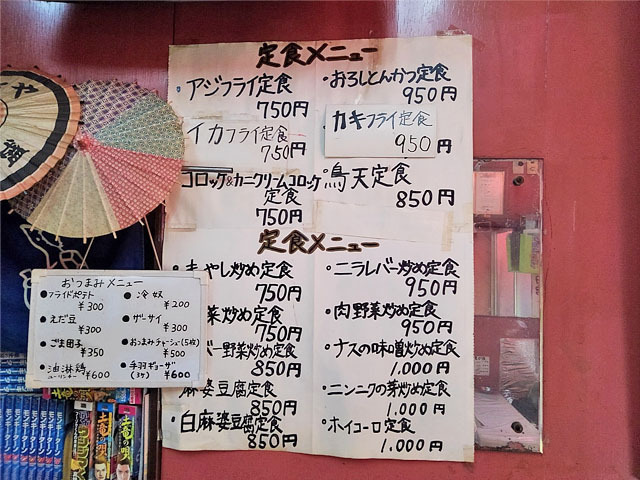 定食メニュー
アジフライ定食
750円
イカフライ定食
750円
コロッケ&カニクリームコロッケ
定食
750円
・おろしとんかつ定食
950円
カキフライ定食
950円
鳥天定食
850円
定食メニュー
もやし炒め定食
750円
菜炒め定食
750円
バー野菜炒め定食
850円
麻婆豆腐定食
850円
・白麻婆豆腐定食
850円
・ニラレバー炒め定食
950円
・肉野菜炒め定食
950円
・ナスの味噌炒め定食
1.000円
・ニンニクの芽炒め定食
1.000円
・ホイコーロ定食
1.000円
おつまみメニュー
●フライドポテト
¥300
●えだ豆
¥300
●ごま団子
¥350
●油淋鶏
ユーリンチー ¥600
●冷奴
¥200
●ザーサイ
¥300
●おつまみチャーシュー(5枚)
¥500
●手羽ギョーザ
(3ケ) ¥600
土竜の唄